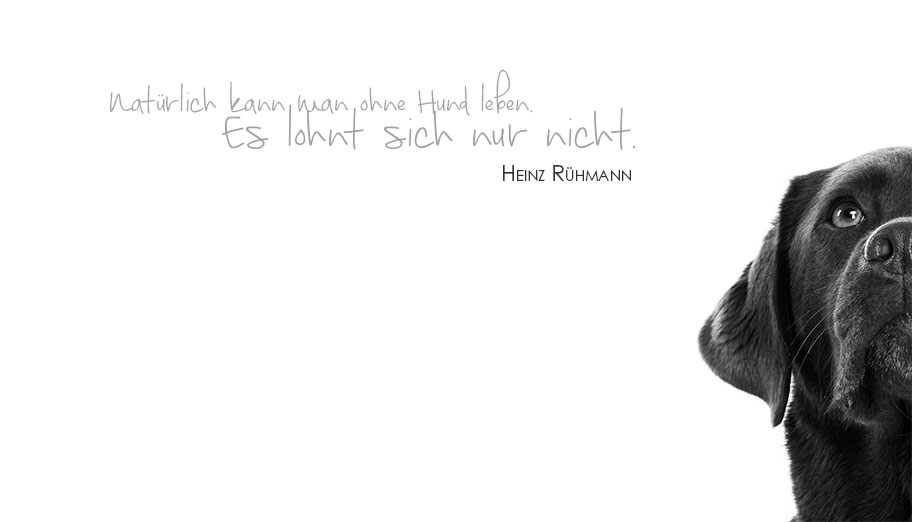 Natürlich kann man ohne Hund leben.
Es lohnt sich nur nicht.
Heinz Rühmann